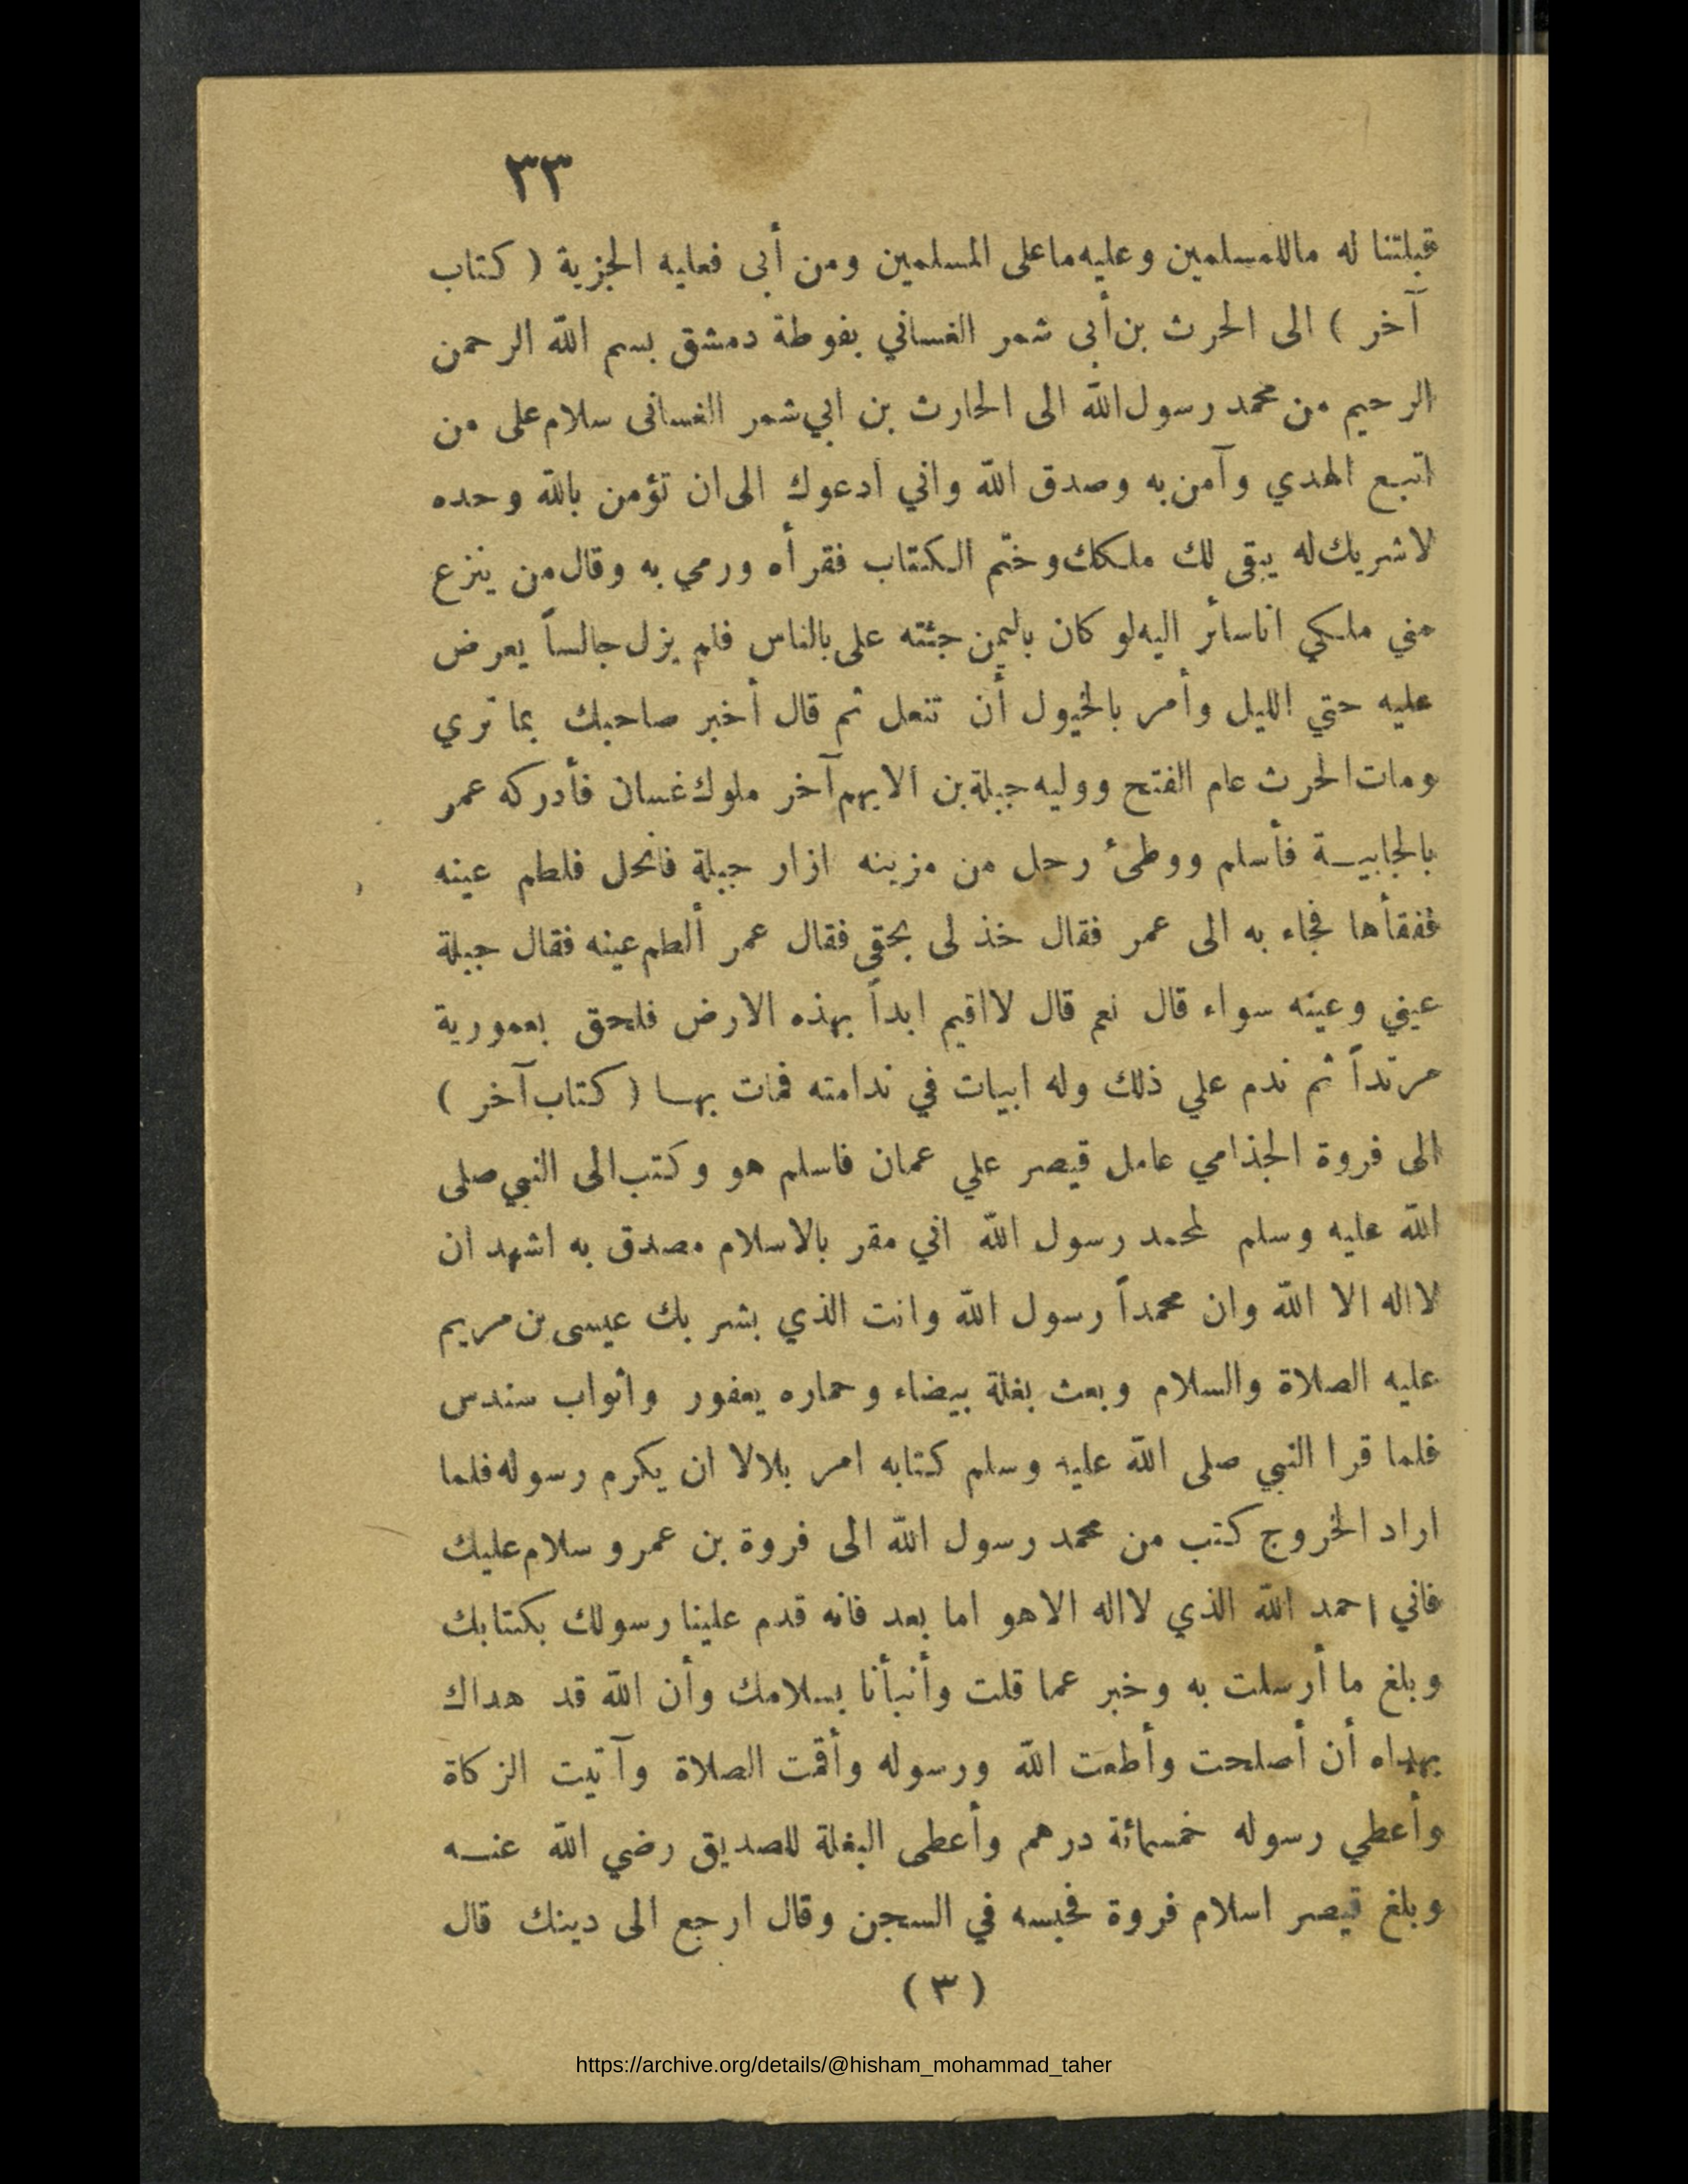 ٣٣
قبلتنا له ماللمسلمين وعليه ماعلى المسلمين ومن أبى فعليه الجزية ( كتاب
آخر ) الى الحرث بن أبى شمر الغساني بغوطة دمشق بسم الله الرحمن
الرحيم من محمد رسول الله الى الحارث بن ابي شمر الغسانى سلام على من
اتبع الهدي وآمن به وصدق الله واني ادعوك الى ان تؤمن بالله وحده
لاشريك له يبقى لك ملكك وختم الكتاب فقرأه ورمي به وقال من ينزع
مني ملكي اناسائر اليه لو كان باليمن جئته على بالناس فلم يزل جالساً يعرض
عليه حتي الليل وأمر بالخيول أن تنعل ثم قال أخبر صاحبك بما تري
ومات الحرث عام الفتح ووليه جبلة بن الايهم آخر ملوك غسان فأدركه عمر
بالجابية فأسلم ووطئ رحل من مزينه ازار جبلة فانحل فلطم عينه
ففقأها فجاء به الى عمر فقال خذ لى بحقى فقال عمر ألطم عينه فقال جبلة
عيني وعينه سواء قال نعم قال لااقيم ابداً بهذه الارض فلحق بعمورية
مرتداً ثم ندم علي ذلك وله ابيات في ندامته فمات بها ( كتاب آخر )
الى فروة الجذامي عامل قيصر علي عمان فاسلم هو وكتب الى النبي صلى
الله عليه وسلم لمحمد رسول الله اني مقر بالاسلام مصدق به اشهد ان
لااله الا الله وان محمداً رسول الله وانت الذي بشر بك عيسى بن مريم
عليه الصلاة والسلام وبعث بغلة بيضاء وحماره يعفور واثواب سندس
فلما قرا النبي صلى الله عليه وسلم كتابه امر بلالا ان يكرم رسوله فلما
اراد الخروج كتب من محمد رسول الله الى فروة بن عمرو سلام عليك
فاني احمد الله الذي لااله الاهو اما بعد فانه قدم علينا رسولك بكتابك
وبلغ ما أرسلت به وخبر عما قلت وأنبأنا بسلامك وأن الله قد هداك
بهداه أن أصلحت وأطعت الله ورسوله وأقمت الصلاة وآتيت الزكاة
وأعطي رسوله خمسمائة درهم وأعطى البغلة للصديق رضي الله عنه
وبلغ قيصر اسلام فروة فحبسه في السجن وقال ارجع الى دينك قال
( ٣ )
https://archive.org/details/@hisham_mohammad_taher